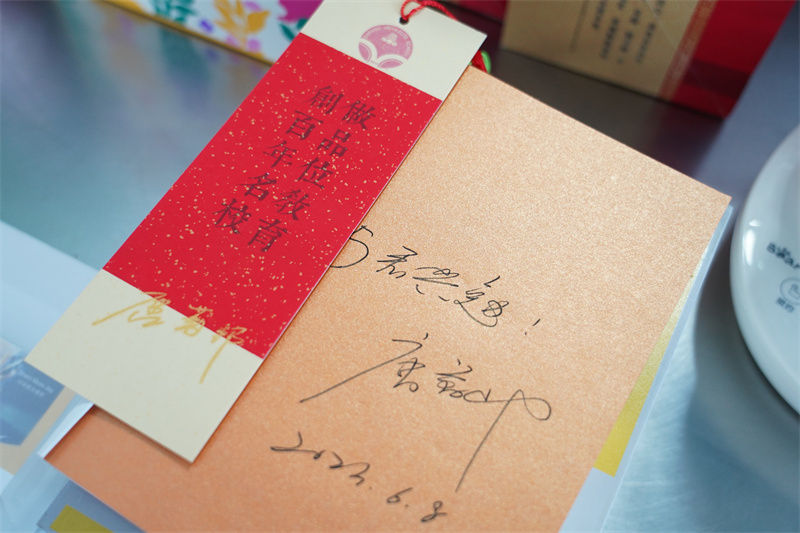 做品位教育
創百年名校
与君共勉!
唐
2023.6.8